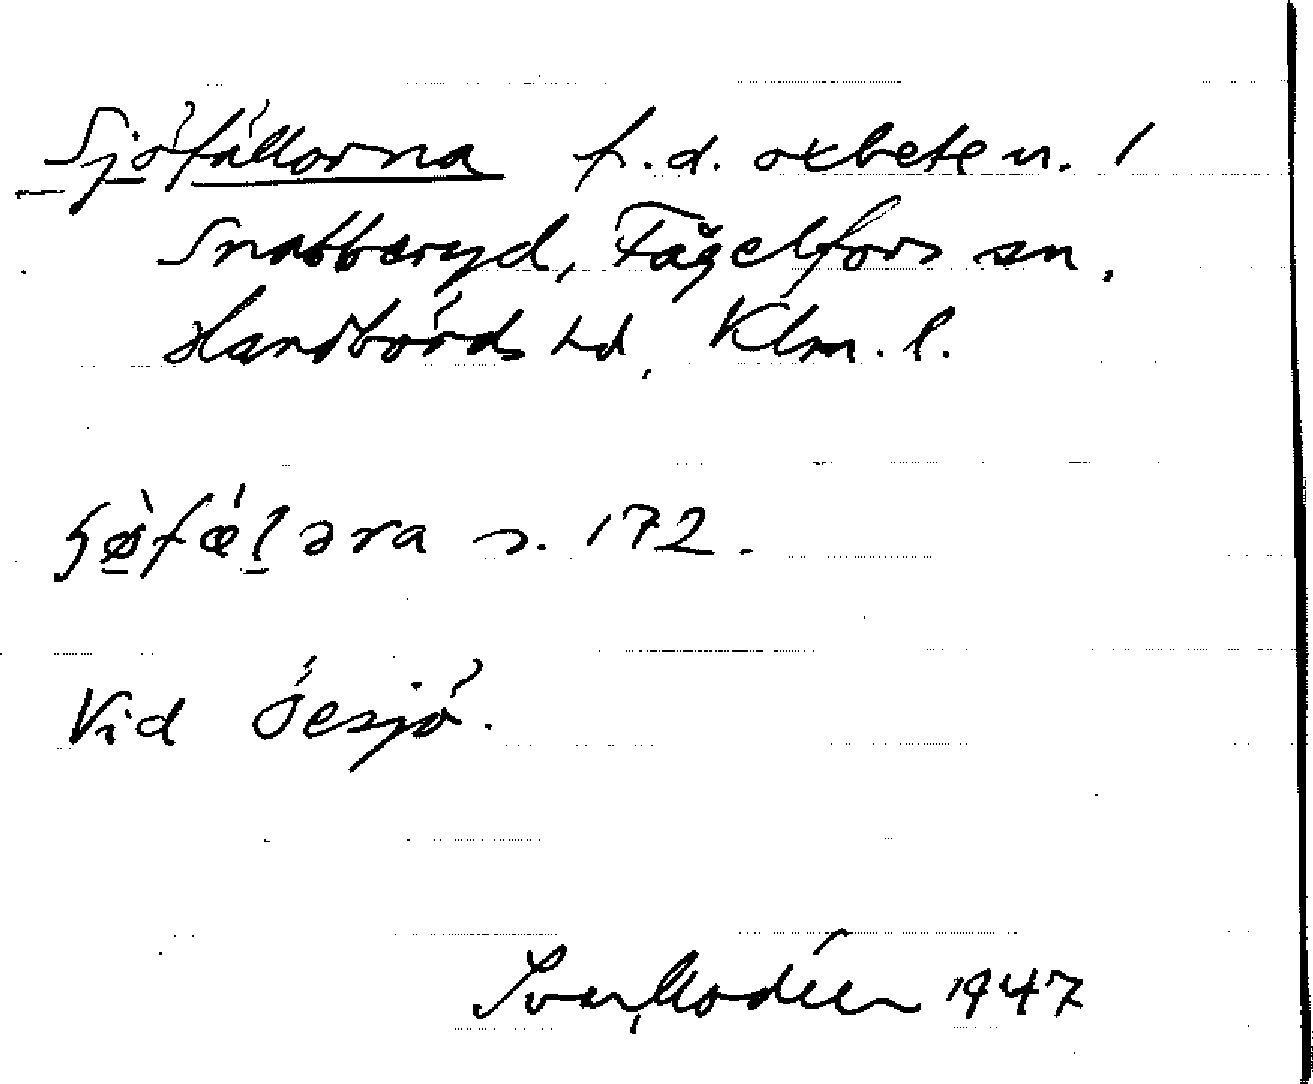 Sjöfällorna f.d. oxbete u. 1
Snabberyd, Fågelfors sn,
Handbörds hd, Klm. l.
ɧø̀fǽl̥əra s. 172.
Vid Ösjö.
Ivar Modéer 1947